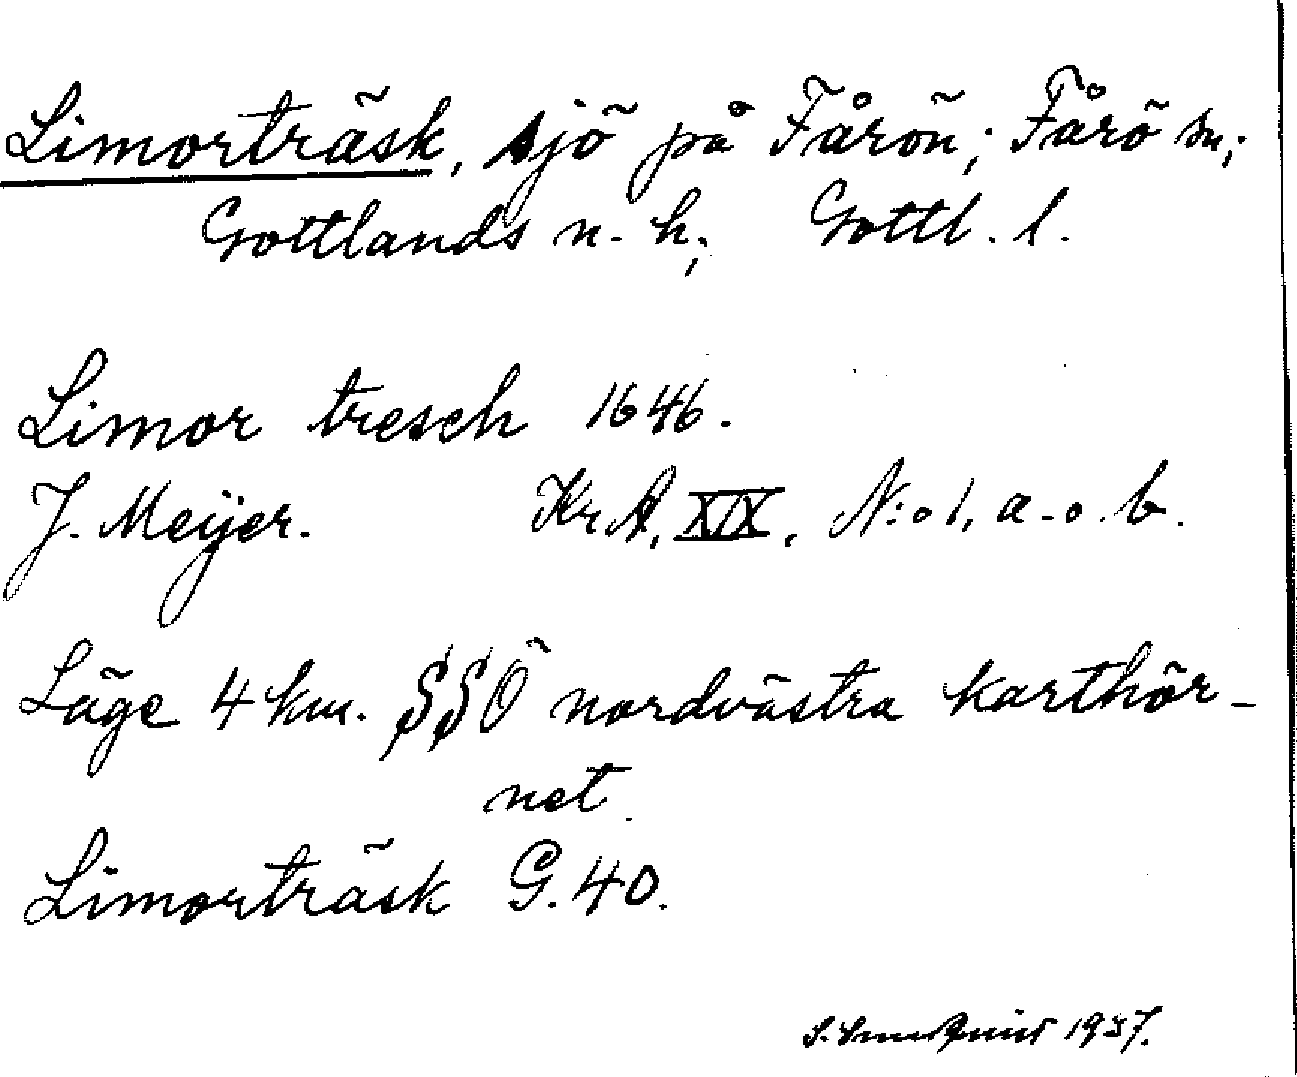 Limorträsk, sjö på Fårön; Fårö sn;
Gottlands n. h; Gottl. l.
Limor tresch 1646.
J. Meijer. Kr. A, XIX, N:o 1, a. o. b.
Läge 4 km. SSÖ nordvästra karthör-
net.
Limorträsk G. 40.
S. 1937.